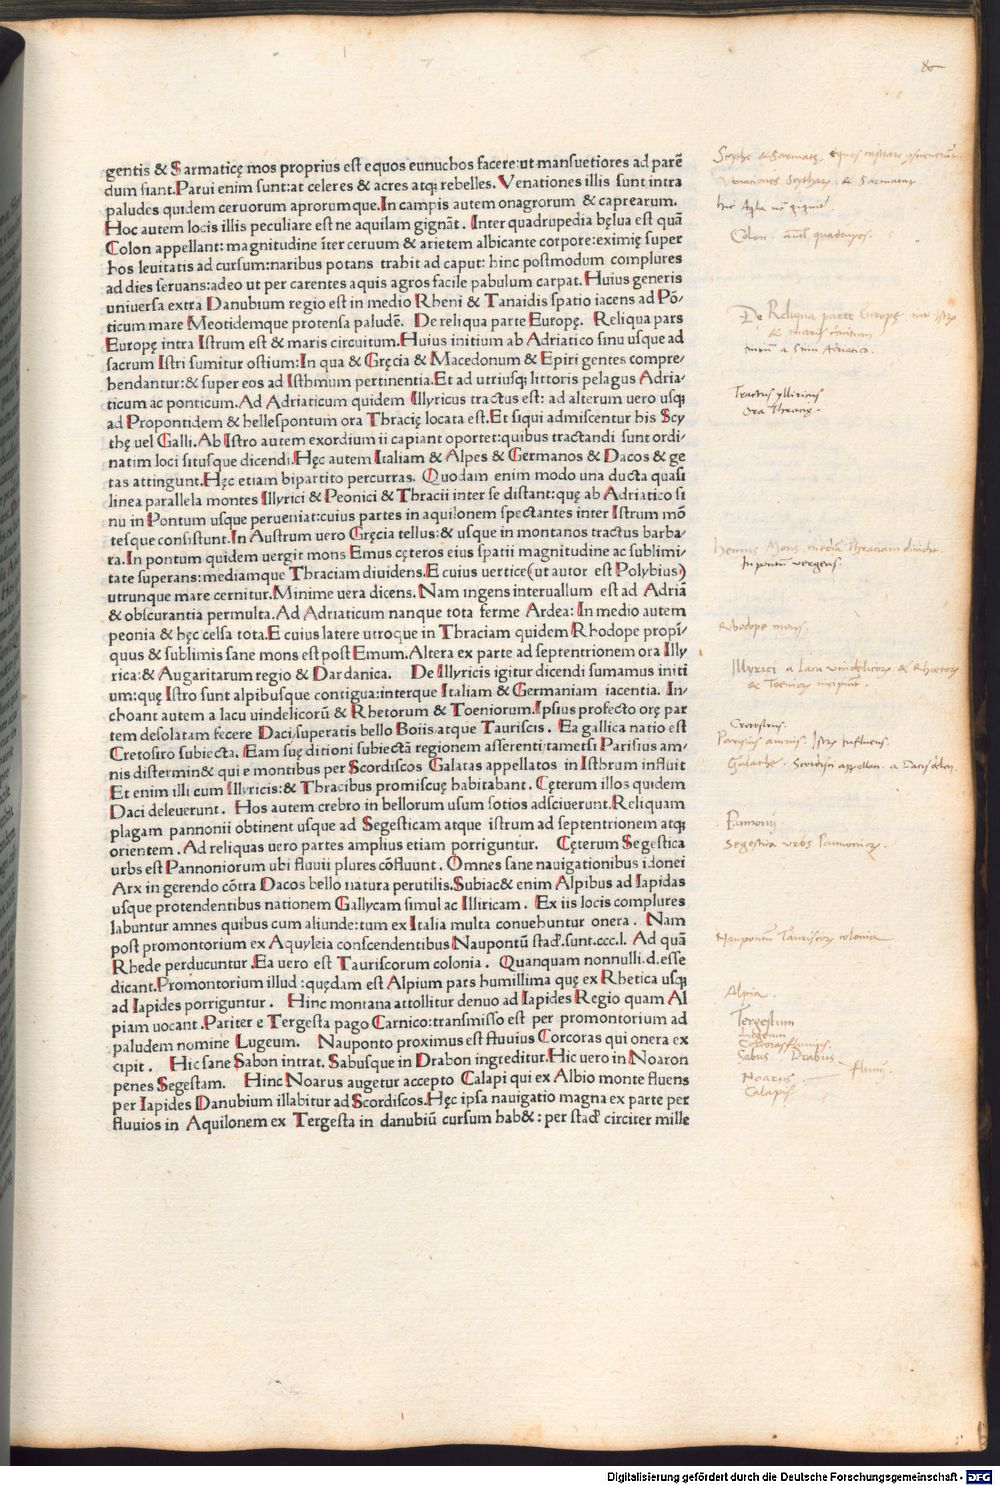 gentis & Sarmaticę mos proprius est equos eunuchos facere:ut mansuetiores ad parē
dum fiant.Parui enim sunt:at celeres & acres atqꝫ rebelles. Venationes illis sunt intra
paludes quidem ceruorum aprorumque.In campis autem onagrorum & caprearum.
Hoc autem locis illis peculiare est ne aquilam gignāt. Inter quadrupedia bęlua est quā
Colon appellant: magnitudine īter ceruum & arietem albicante corpore:eximię super
hos leuitatis ad cursum:naribus potans trahit ad caput: hinc postmodum complures
ad dies seruans:adeo ut per carentes aquis agros facile pabulum carpat.Huius generis
uniuersa extra Danubium regio est in medio Rheni & Tanaidis spatio iacens ad Pō/
ticum mare Meotidemque protensa paludē. De reliqua parte Europę. Reliqua pars
Europę intra Istrum est & maris circuitum.Huius initium ab Adriatico sinu usque ad
sacrum Istri sumitur ostium:In qua & Gręcia & Macedonum & Epiri gentes compre/
hendantur:& super eos ad Isthmum pertinentia.Et ad utriusqꝫ littoris pelagus Adria/
ticum ac ponticum.Ad Adriaticum quidem Illyricus tractus est: ad alterum uero usqꝫ
ad Propontidem & hellespontum ora Thracię locata est.Et siqui admiscentur his Scy
thę uel Galli.Ab Istro autem exordium ii capiant oportet:quibus tractandi sunt ordi/
natim loci situsque dicendi.Hęc autem Italiam & Alpes & Germanos & Dacos & ge
tas attingunt.Hęc etiam bipartito percurras. Quodam enim modo una ducta quasi
linea parallela montes Illyrici & Peonici & Thracii inter se distant:quę ab Adriatico si
nu in Pontum usque perueniat:cuius partes in aquilonem spectantes inter Istrum mō
tesque consistunt.In Austrum uero Gręcia tellus:& usque in montanos tractus barba/
ra.In pontum quidem uergit mons Emus cęteros eius spatii magnitudine ac sublimi/
tate superans:mediamque Thraciam diuidens.E cuius uertice(ut autor est Polybius)
utrunque mare cernitur.Minime uera dicens.Nam ingens interuallum est ad Adriā
& obscurantia permulta.Ad Adriaticum nanque tota ferme Ardea:In medio autem
peonia & hęc celsa tota.E cuius latere utroque in Thraciam quidem Rhodope propī/
quus & sublimis sane mons est post Emum.Altera ex parte ad septentrionem ora Illy
rica:& Augaritarum regio & Dardanica. De Illyricis igitur dicendi sumamus initi
um:quę Istro sunt alpibusque contigua:interque Italiam & Germaniam iacentia. In/
choant autem a lacu uindelicorū & Rhetorum & Toeniorum.Ipsius profecto orę par
tem desolatam fecere Daci,superatis bello Boiis atque Tauriscis. Ea gallica natio est
Cretosiro subiecta.Eam suę ditioni subiectā regionem asserenti,tametsi Parisius am/
nis distermin& qui e montibus per Scordiscos Galatas appellatos in Isthrum influit
Et enim illi cum Illyricis:& Thracibus promiscuę habitabant.Cęterum illos quidem
Daci deleuerunt. Hos autem crebro in bellorum usum sotios adsciuerunt.Reliquam
plagam pannonii obtinent usque ad Segesticam atque istrum ad septentrionem atqꝫ
orientem.Ad reliquas uero partes amplius etiam porriguntur. Cęterum Segestica
urbs est Pannoniorum ubi fluuii plures cōfluunt.Omnes sane nauigationibus idonei
Arx in gerendo cōtra Dacos bello natura perutilis.Subiac& enim Alpibus ad Iapidas
usque protendentibus nationem Gallycam simul ac Illiricam. Ex iis locis complures
labuntur amnes quibus cum aliunde:tum ex Italia multa conuehuntur onera. Nam
post promontorium ex Aquyleia conscendentibus Nauportū stad.sunt.ccc.l. Ad quā
Rhede perducuntur.Ea uero est Tauriscorum colonia. Quanquam nonnulli.d.esse
dicant.Promontorium illud:quędam est Alpium pars humillima quę ex Rhetica usqꝫ
ad Iapides porriguntur. Hinc montana attollitur denuo ad Iapides Regio quam Al
piam uocant.Pariter e Tergesta pago Carnico:transmisso est per promontorium ad
paludem nomine Lugeum. Nauponto proximus est fluuius Corcoras qui onera ex
cipit. Hic sane Sabon intrat.Sabusque in Drabon ingreditur.Hic uero in Noaron
penes Segestam. Hinc Noarus augetur accepto Calapi qui ex Albio monte fluens
per Iapides Danubium illabitur ad Scordiscos.Hęc ipsa nauigatio magna ex parte per
fluuios in Aquilonem ex Tergesta in danubiū cursum hab&: per stad circiter mille
Venationes Scythar & Sarmatar
Colon
De Reliqua parte Europę
Tractus ylliricus
ora Thracię.
Hemus Mons mediā Thraciam diuidit.
In pontū vergens.
Rhodope mons.
Illyrici a Lacu vindelicor & Rhaetor
& Toenior incipiūt
Parisius amnis. Istr influens.
Galathe. Scordisci appellan. a Dacis delen.
Pannonij
Segestica vrbs Pannonior.
Naupontū Tauriscor colonia
Alpia.
Tergestum
Lugeum
Corcoras fluuius.
Sabus. Drabus
Noarus
fluuij.
Calapis
Digitalisierung gefördert durch die Deutsche Forschungsgemeinschaft - DFG